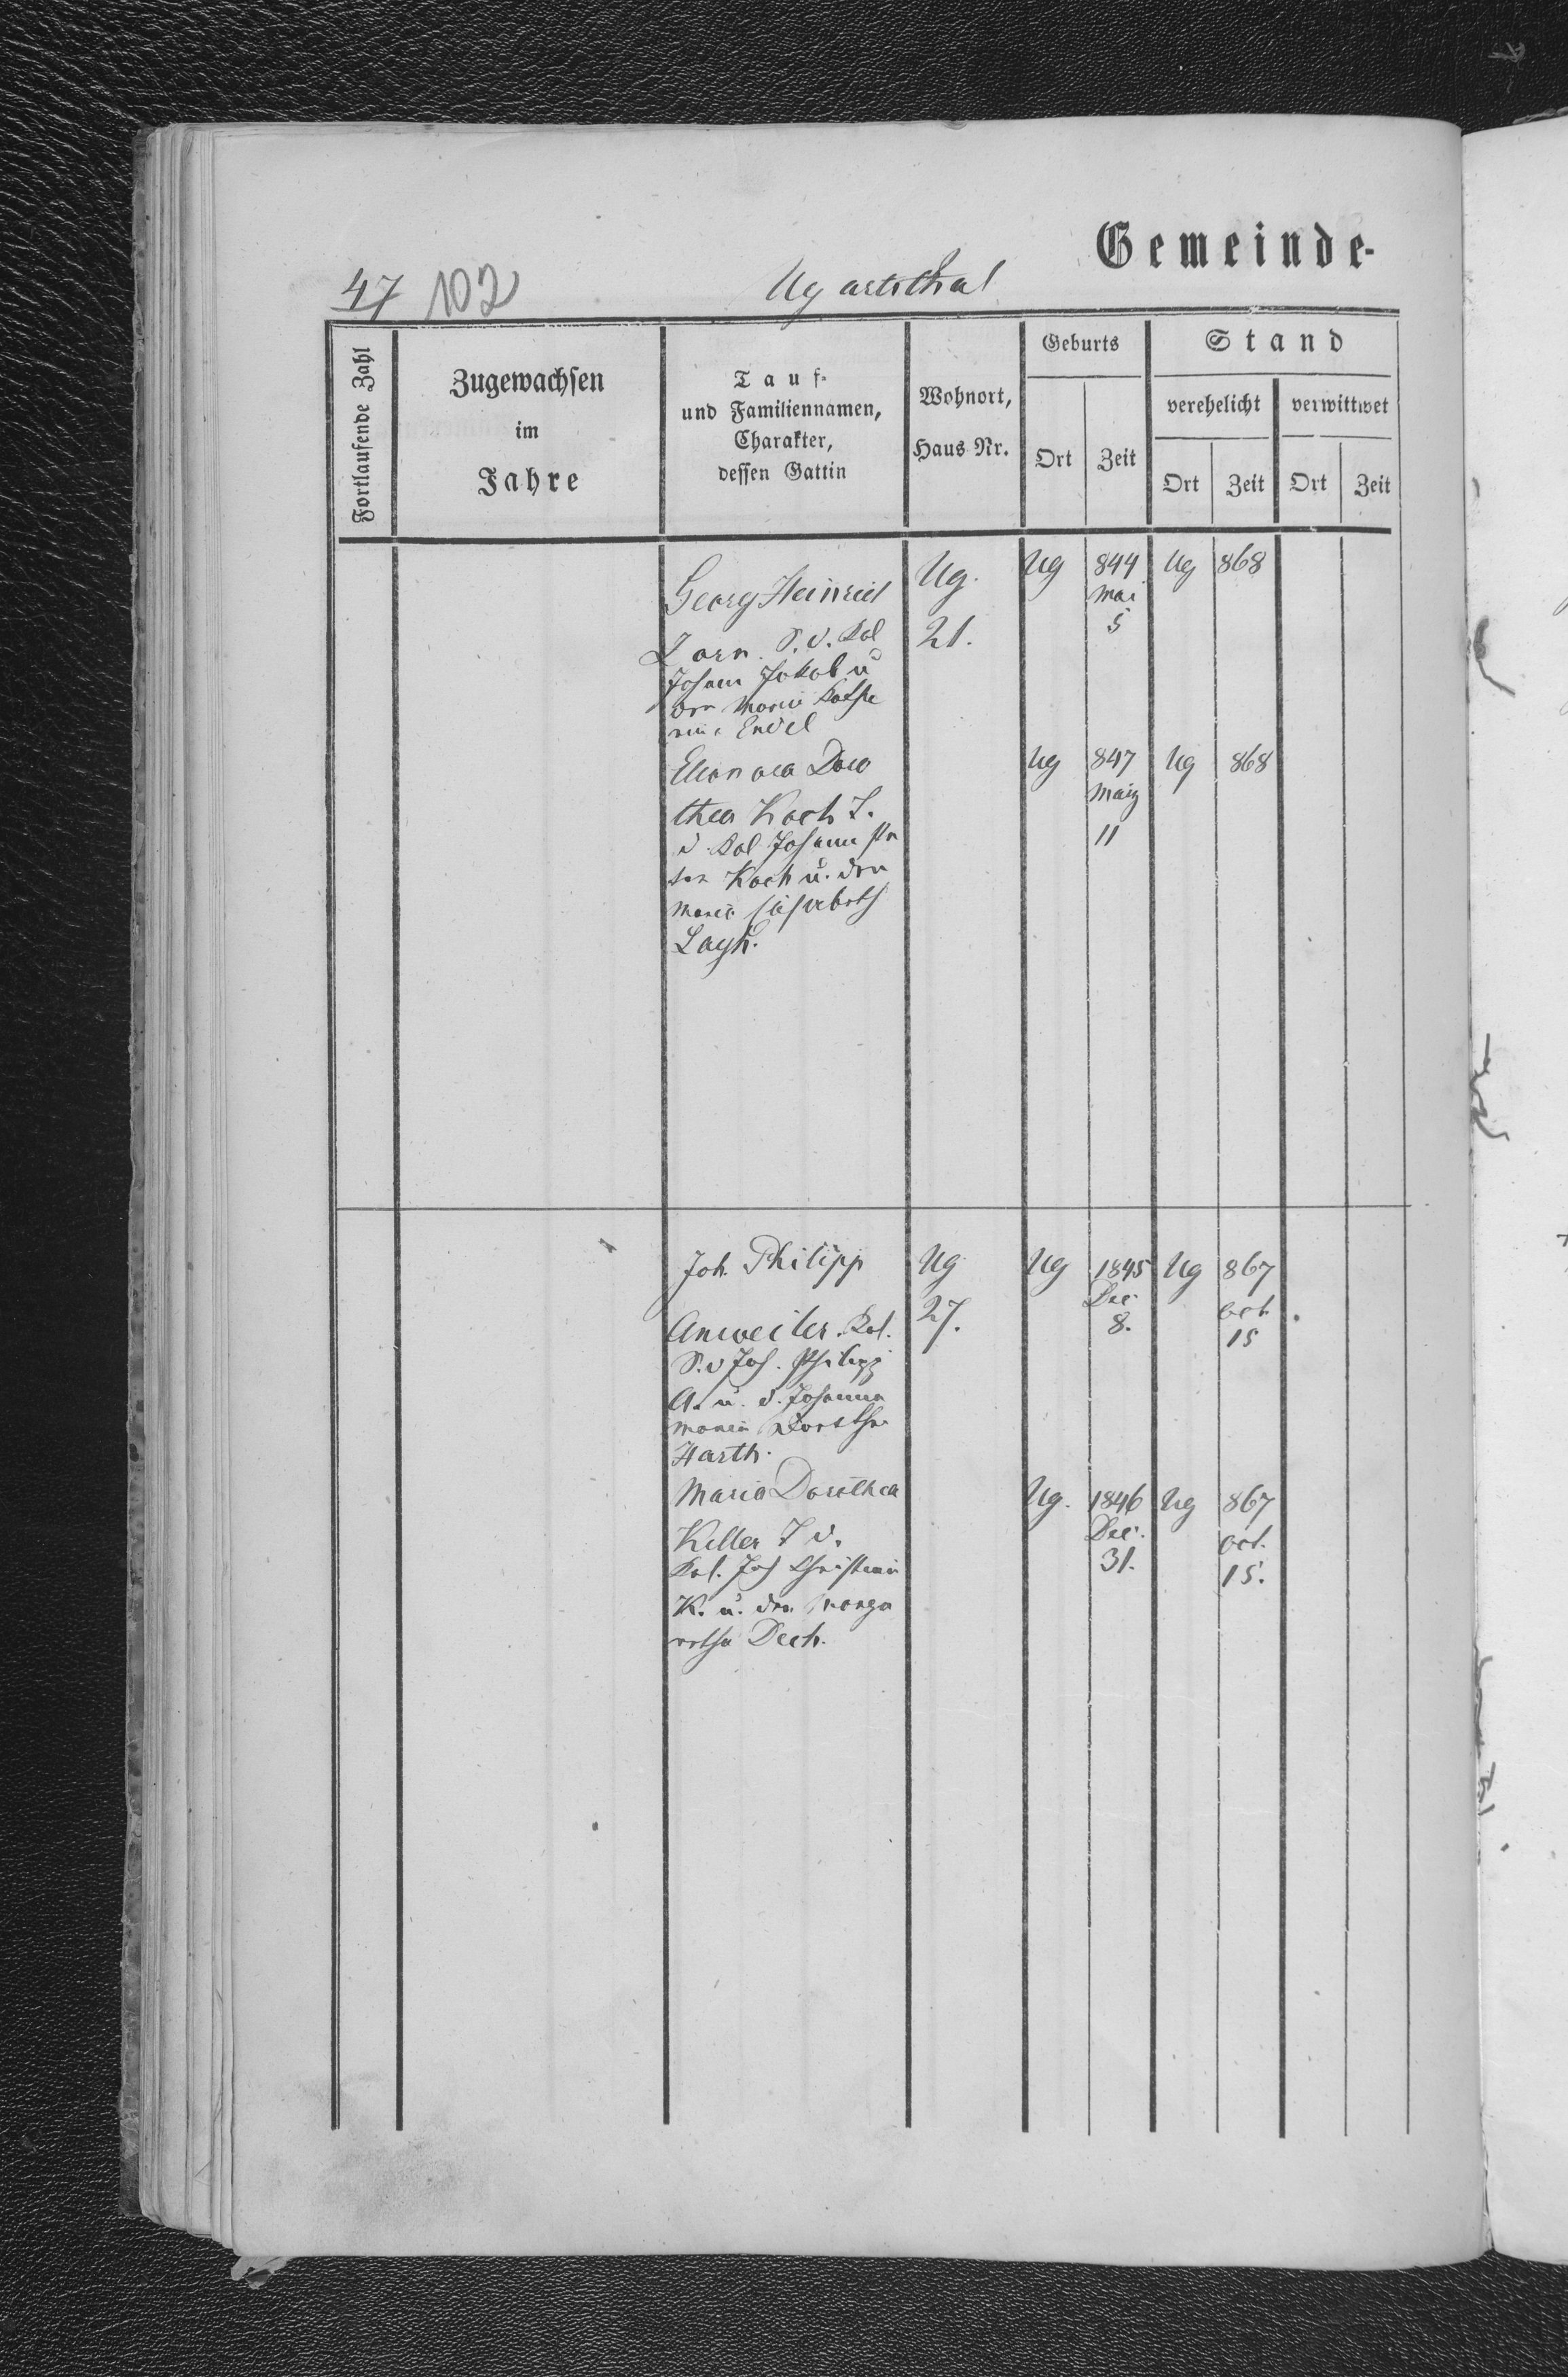 Gemeinde-
47 102 Ugartsthal
Fortlaufende Zahl
Zugewachsen
im
Jahre
Tauf-
und Familiennamen,
Charakter,
dessen Gattin
Wohnort,
Haus Nr.
Geburts
Ort Zeit
Stand
verehelicht verwittwet
Ort Zeit Ort Zeit
Georg Heinrich Ug. Ug 844 Ug 868
Mai
5
Zorn. S. d. Kol 21.
Johann Jakob u
der Maria Kathe
rina Endel
Eleonora Doro Ug 847 Ug 868
März
11
thea Koch T.
d. Kol Johann Pe
ter Koch u. der
Maria Elisabeth
Joh. Philipp Ug Ug 1845 Ug 867
Dec. oct
8. 15
Anweiler. Kol. 27.
S. d Joh. Philipp
A. u. d. Johanna
Maria Dorothea
Harth.
Maria Dorothea Ug. 1846 Ug 867
Dec. oct.
31. 15.
Keller T d.
Kol. Joh Christian
K. u. der Marga
retha Dech.